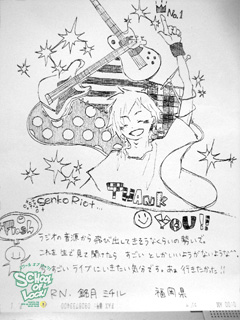 No.1
Senko Riot...
THANK
YOU!!
Flash
ラジオの音源から飛び出してきそうなくらいの勢いで。
これを生で見て聞けたら すごい としかいいようがないような^^
すごいライブにいきたい気分です。あぁ 行きたかった!!
SCHOOL OF LOCK!
R.N. 銘月 ミチル 福岡県